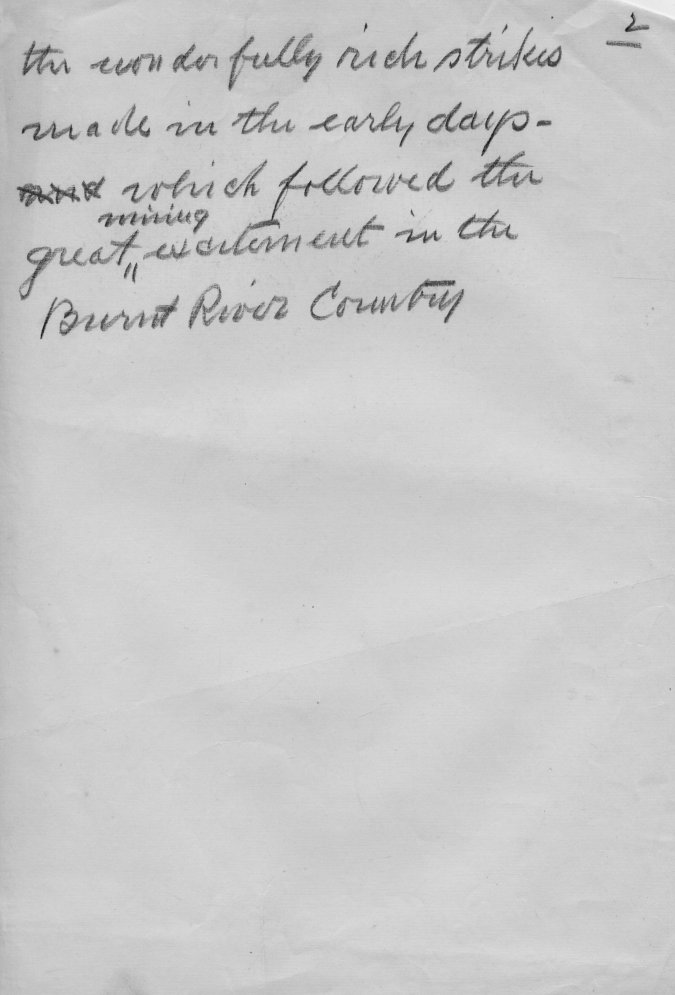 2
the wonderfully rich strikes
made in the early days-
and which followed the
mining
great " excitement in the
Burnt River Country